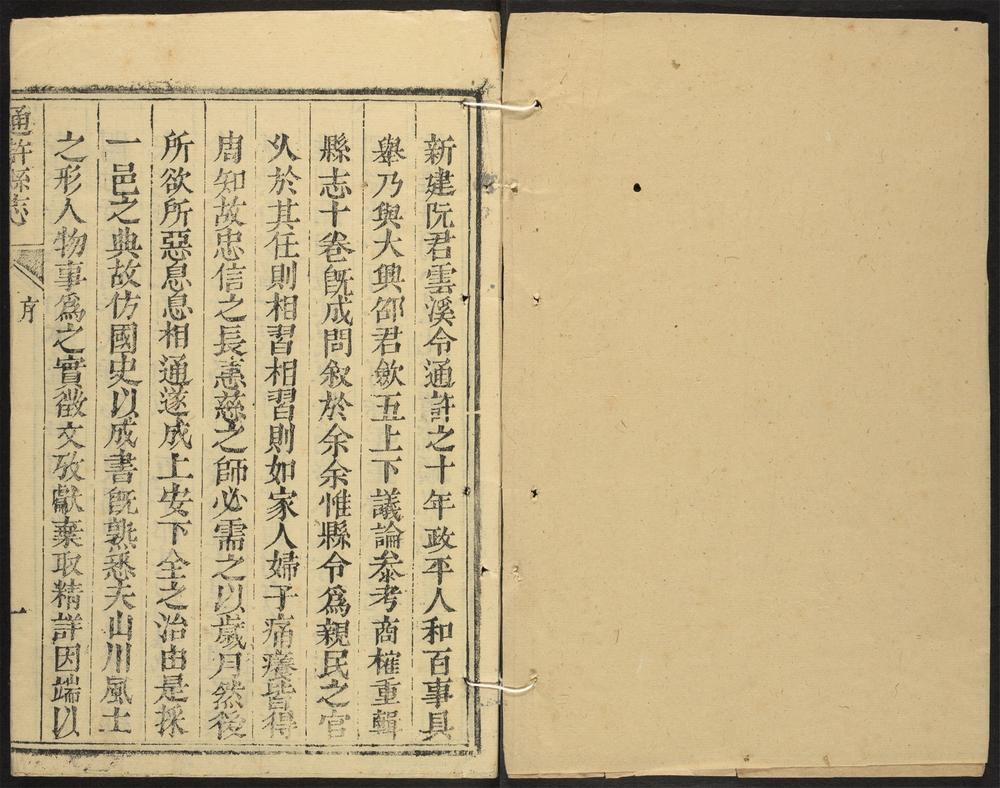 新建阮君雲溪令通許之十年政平人和百事具
舉乃與大興邵君歛五上下議論叅考商榷重輯
縣志十卷旣成問敘於余余惟縣令爲親民之官
久於其任則相習相習則如家人婦子痛癢皆得
周知故忠信之長憲慈之師必需之以歲月然後
所欲所惡息息相通遂成上安下全之治由是採
一邑之典故仿國史以成書旣熟悉夫山川風土
之形人物事爲之實徵文攷獻棄取精詳因端以
通許縣志
序
一